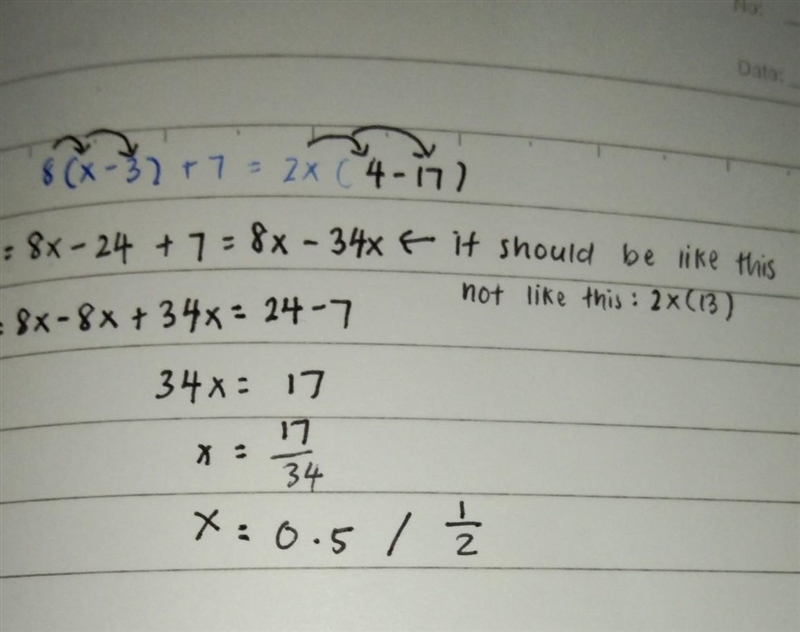 No:
Data:
8(x-3) + 7 = 2x (4-17)
= 8x - 24 + 7 = 8x - 34x ← it should be like this
not like this: 2x(13)
= 8x - 8x + 34x = 24 - 7
34x = 17
x = 17/34
x = 0.5 / 1/2